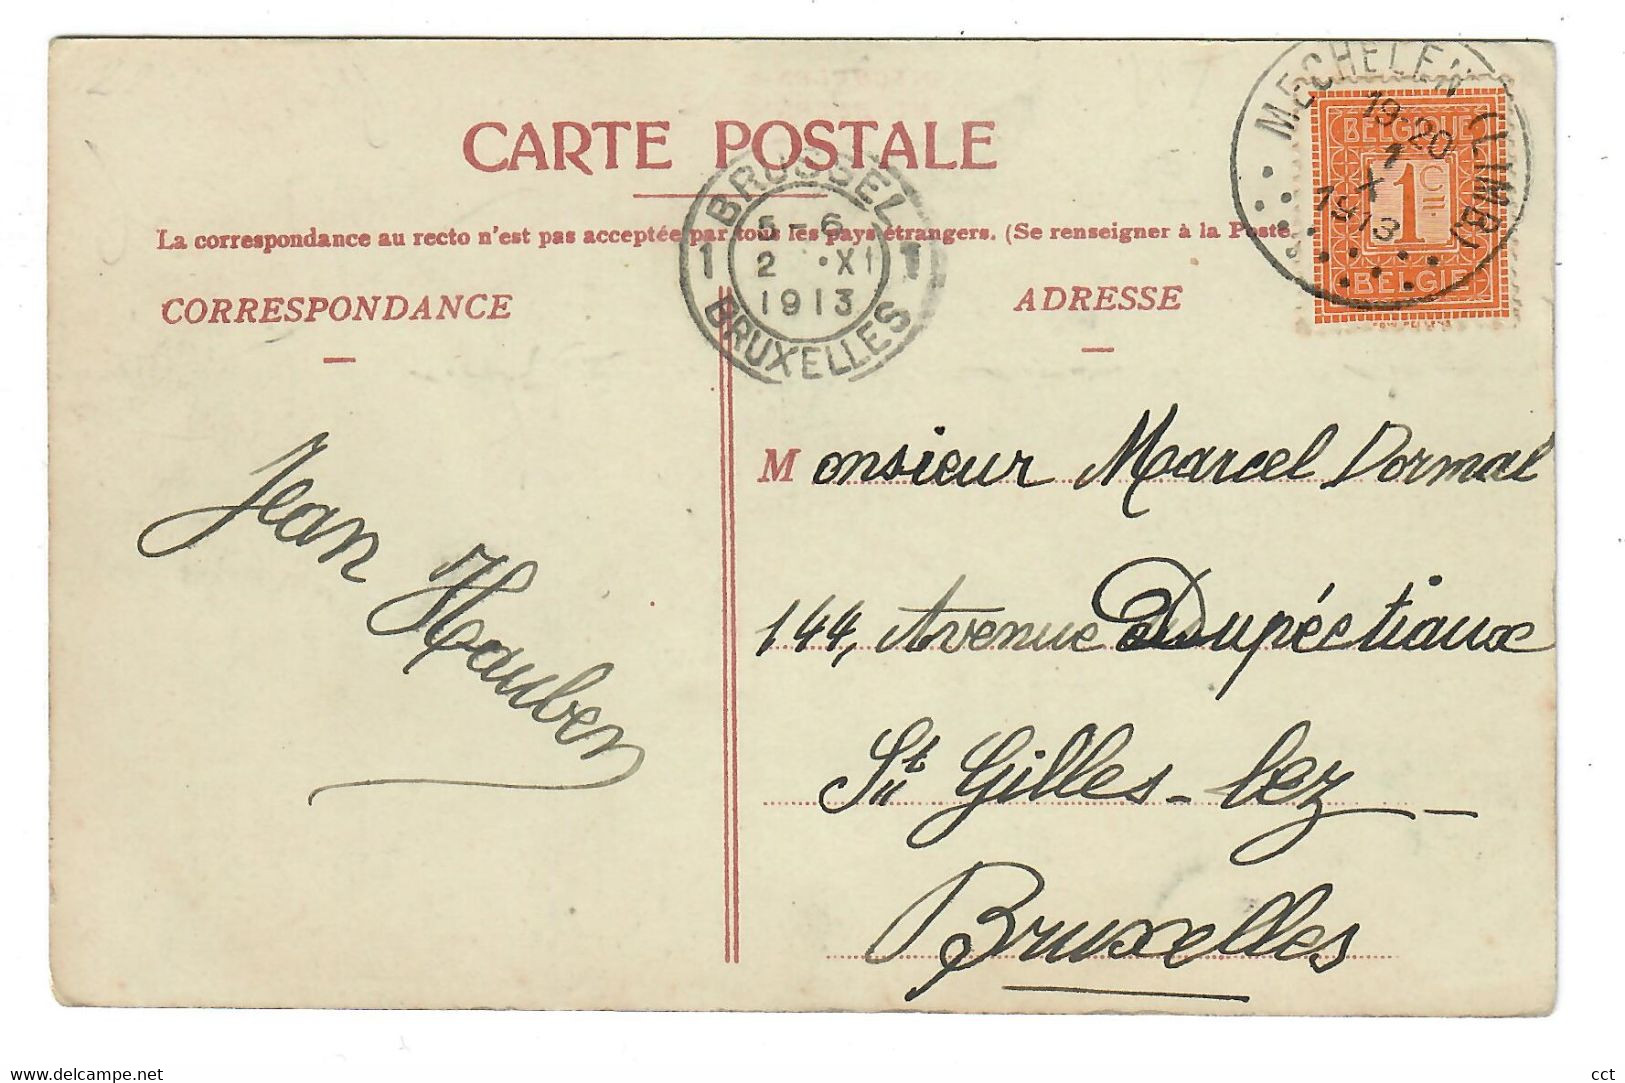 CARTE POSTALE
La correspondance au recto n'est pas acceptée par tous les pays étrangers. (Se renseigner à la Poste.
CORRESPONDANCE
ADRESSE
BRUSSEL
1 5-6 1
2 · XI
1913
BRUXELLES
MECHELEN (LIMB)
19-20
1
X
1913
BELGIQUE
1 C
BELGIE
Jean Hauben
Monsieur Marcel Dormal
144, Avenue Dupéctiaux
St Gilles-lez-
Bruxelles
www.delcampe.net
cct